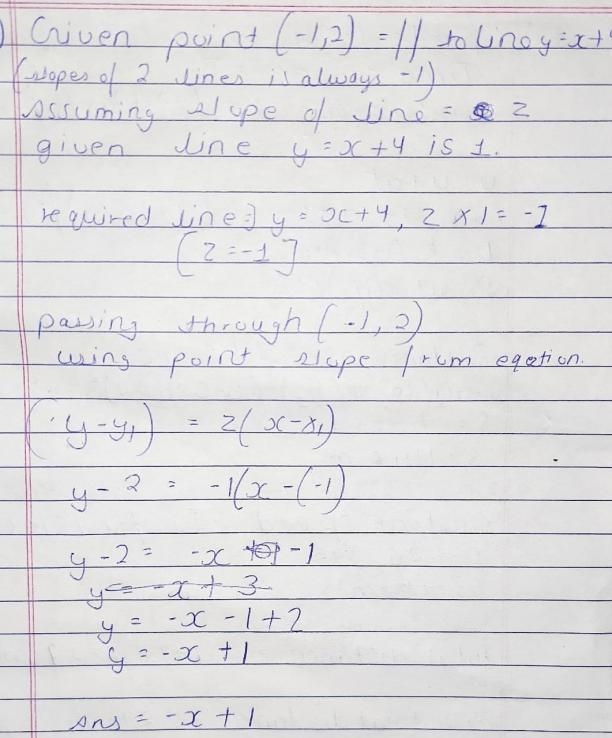 Given point (-1,2) = // to line y=x+4
(slopes of 2 lines is always -1)
Assuming slope of line = z
given line y = x+4 is 1.
required line ⇒ y = x+4, z x 1 = -1
[z = -1]
passing through (-1, 2)
using point slope from eqetion.
(y-y₁) = z(x-x₁)
y - 2 = -1(x - (-1)
y - 2 = -x -1
y = -x + 3
y = -x - 1 + 2
y = -x + 1
Ans = -x + 1